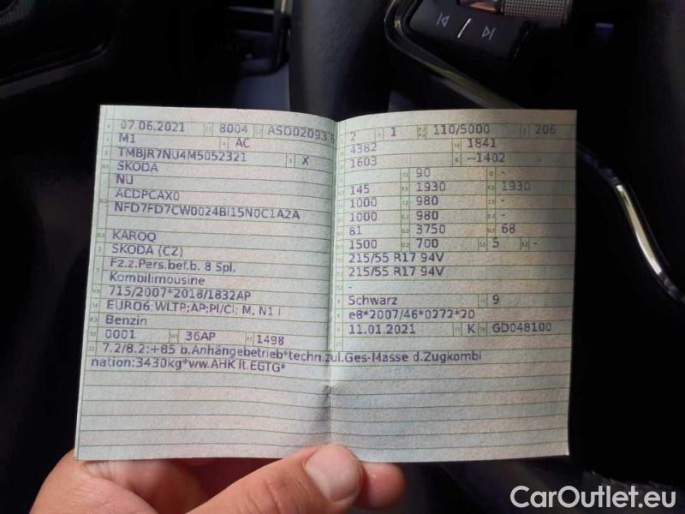 07.06.2021 8004 ASD02093
M1 AC
TMBJR7NU4M5052321 X
SKODA
NU
ACDPCAX0
NFD7FD7CW0024BI15N0C1A2A
KAROQ
SKODA (CZ)
Fz.z.Pers.bef.b. 8 Spl.
Kombilimousine
715/2007*2018/1832AP
EURO6;WLTP;AP;PI/CI; M, N1 I
Benzin
0001 36AP 1498
7.2/8.2:+85 b.Anhängebetrieb*techn.zul.Ges-Masse d.Zugkombi
nation:3430kg*ww.AHK lt.EGTG*
2 1 110/5000 206
4382 1841
1603 --1402
90 -
145 1930 1930
1000 980 -
1000 980 -
61 3750 68
1500 700 5 -
215/55 R17 94V
215/55 R17 94V
-
Schwarz 9
e8*2007/46*0272*20
11.01.2021 K GD048100
CarOutlet.eu